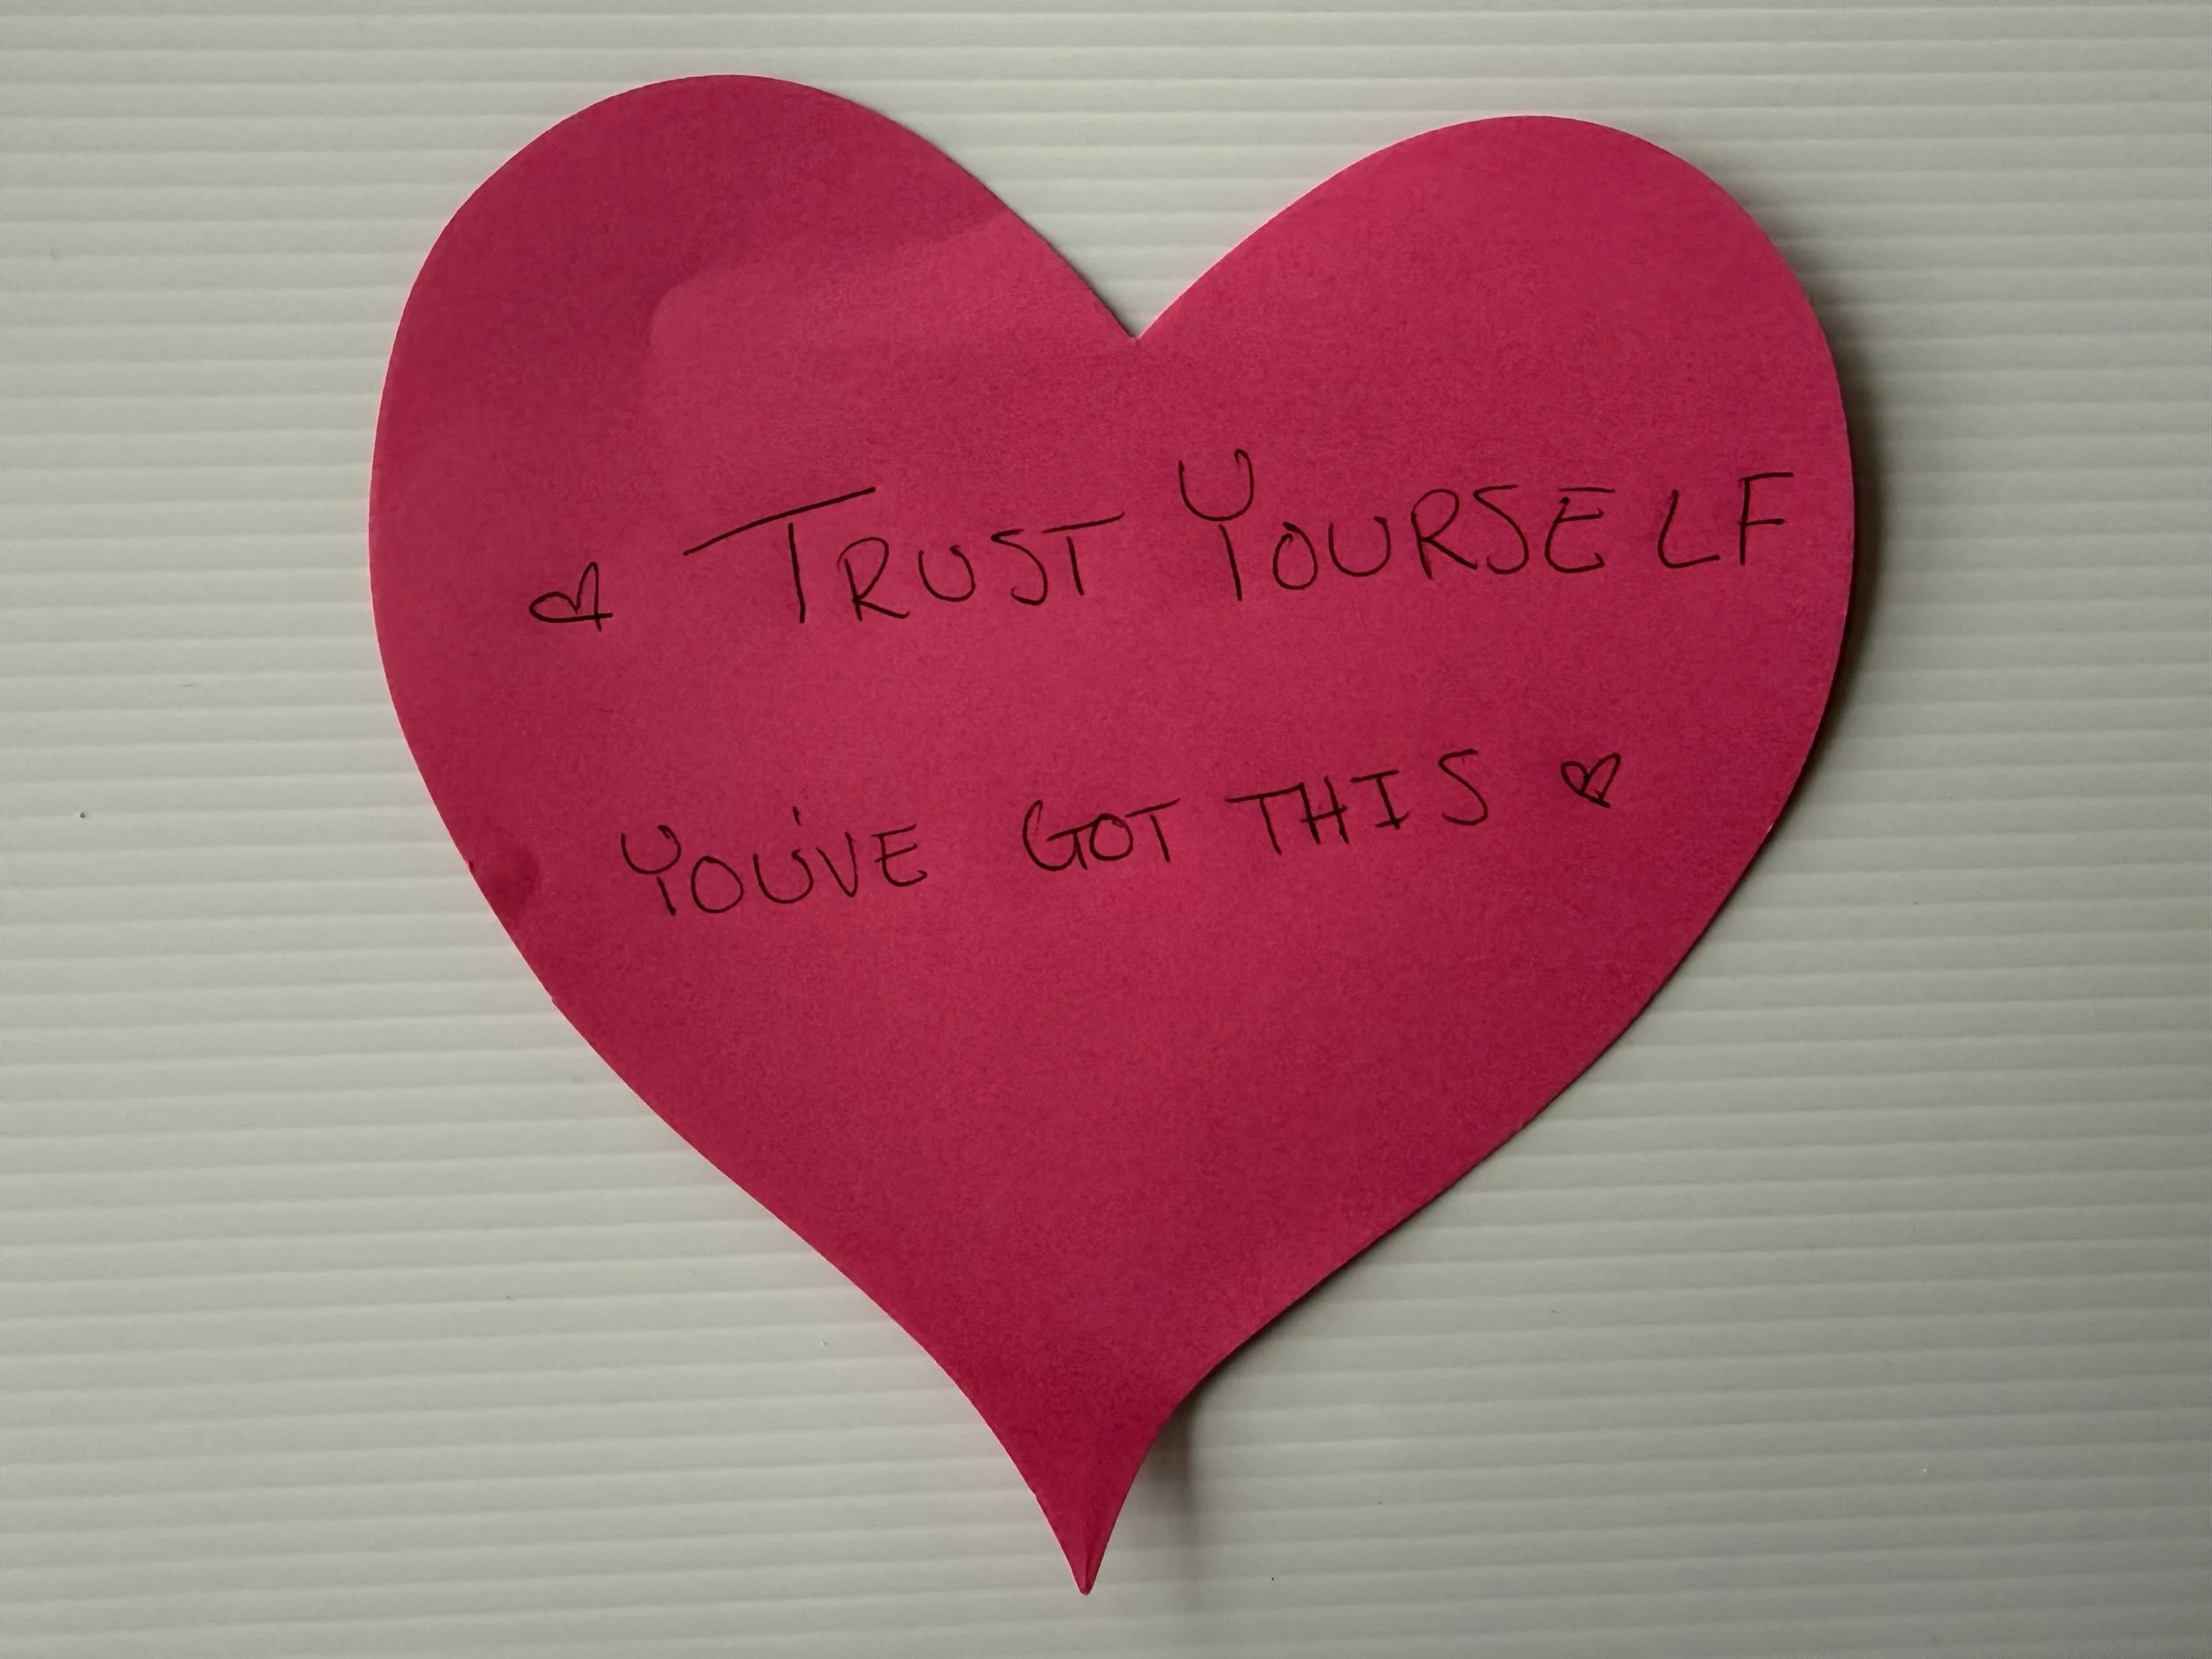 ♡ TRUST YOURSELF
YOU'VE GOT THIS ♡